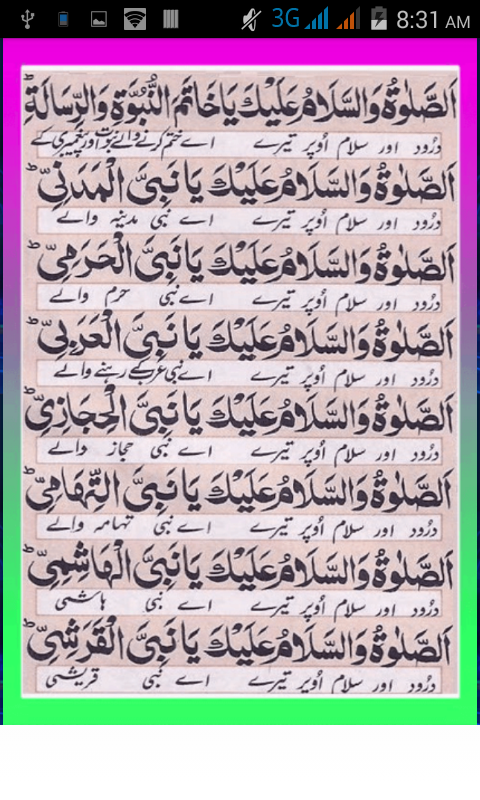 3G 8:31 AM
اَلصَّلٰوةُ وَالسَّلَامُ عَلَيْكَ يَا خَاتَمَ النُّبُوَّةِ وَالرِّسَالَةِ ؕ
درُود اور سلام اُوپر تیرے اے ختم کرنے والے نبوت اور پیغمبری کے
اَلصَّلٰوةُ وَالسَّلَامُ عَلَيْكَ يَا نَبِىَّ الْمَدَنِىِّ ؕ
درُود اور سلام اُوپر تیرے اے نبی مدینہ والے
اَلصَّلٰوةُ وَالسَّلَامُ عَلَيْكَ يَا نَبِىَّ الْحَرَمِىِّ ؕ
درُود اور سلام اُوپر تیرے اے نبی حرم والے
اَلصَّلٰوةُ وَالسَّلَامُ عَلَيْكَ يَا نَبِىَّ الْعَرَبِىِّ ؕ
درُود اور سلام اُوپر تیرے اے نبی عرب کے رہنے والے
اَلصَّلٰوةُ وَالسَّلَامُ عَلَيْكَ يَا نَبِىَّ الْحِجَازِىِّ ؕ
درُود اور سلام اُوپر تیرے اے نبی حجاز والے
اَلصَّلٰوةُ وَالسَّلَامُ عَلَيْكَ يَا نَبِىَّ التِّهَامِىِّ ؕ
درُود اور سلام اُوپر تیرے اے نبی تہامہ والے
اَلصَّلٰوةُ وَالسَّلَامُ عَلَيْكَ يَا نَبِىَّ الْهَاشِمِىِّ ؕ
درُود اور سلام اُوپر تیرے اے نبی ہاشمی
اَلصَّلٰوةُ وَالسَّلَامُ عَلَيْكَ يَا نَبِىَّ الْقَرَشِىِّ ؕ
درُود اور سلام اُوپر تیرے اے نبی قریشی